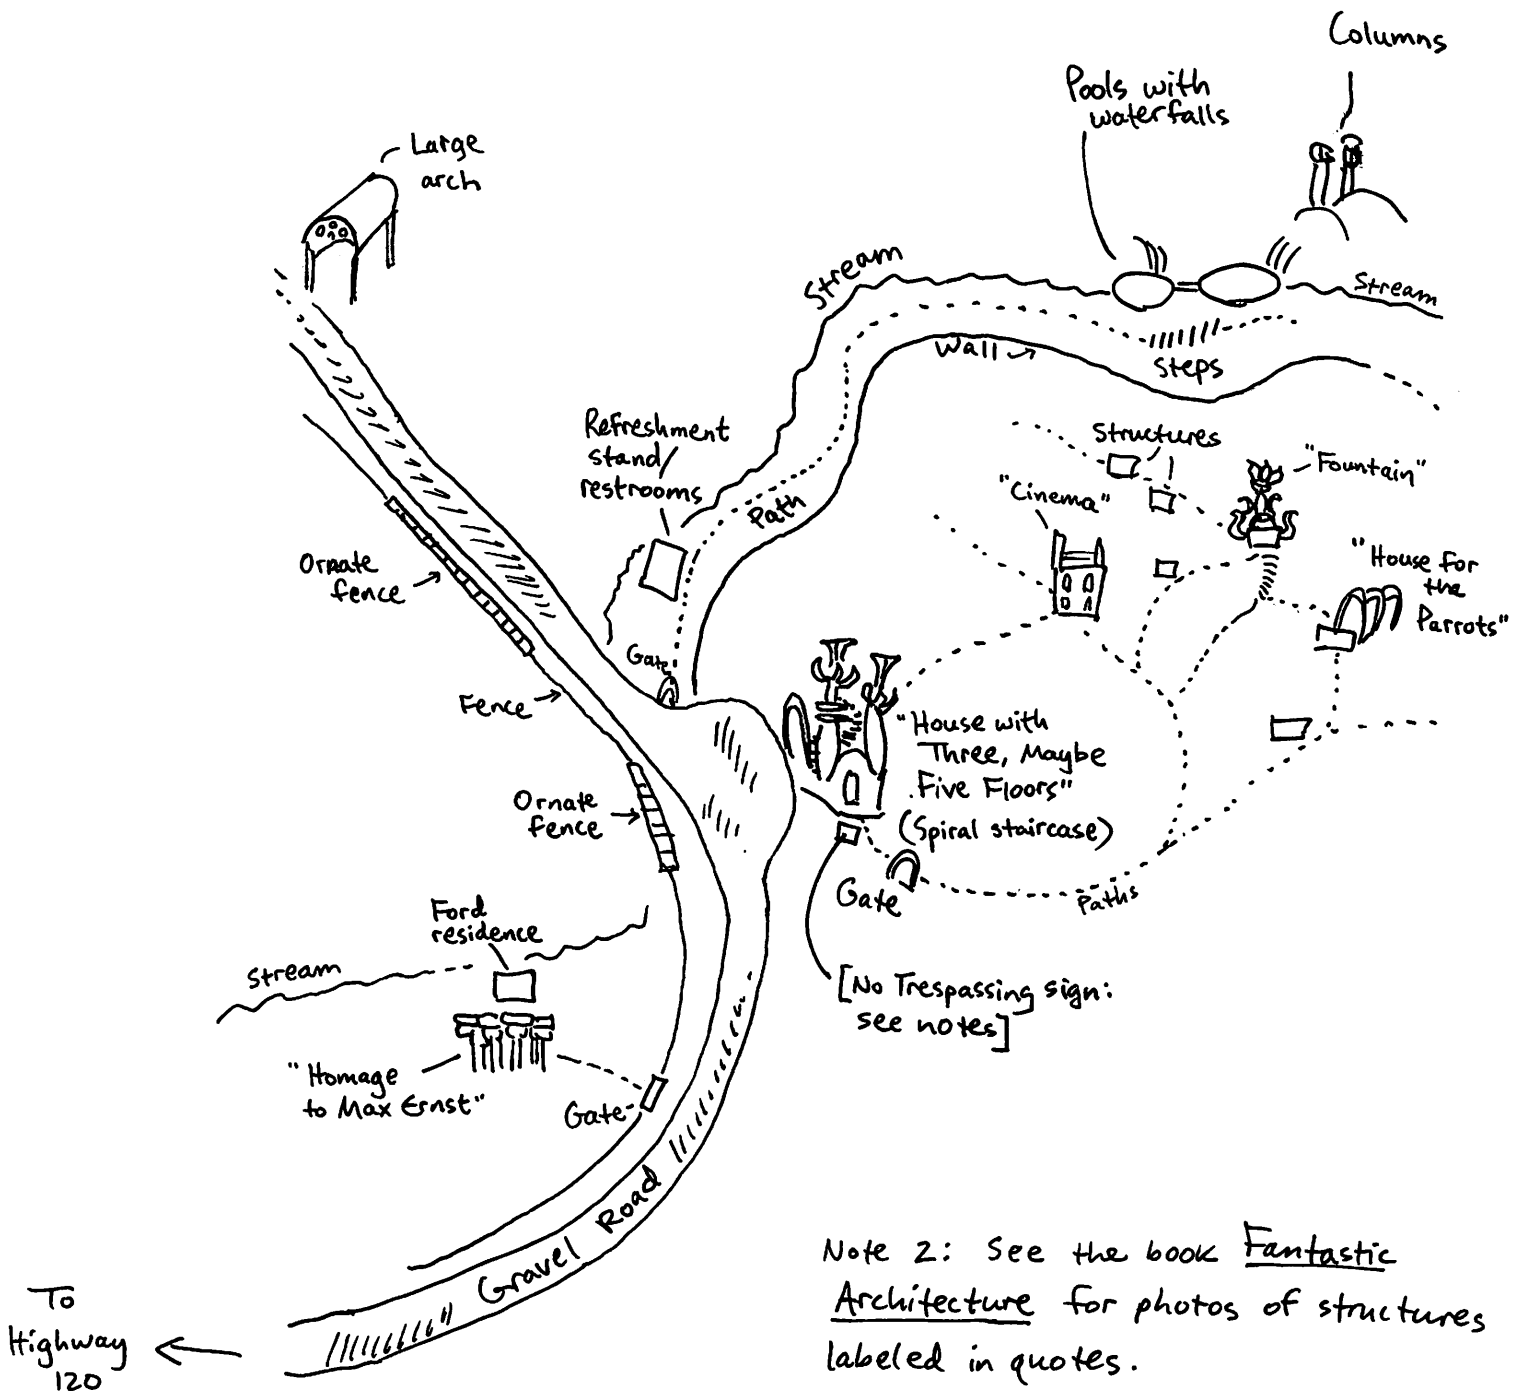 Columns
Pools with
waterfalls
Large
arch
Stream
Stream
Wall →
Steps
Refreshment
stand/
restrooms
Path
Structures
"Fountain"
"Cinema"
"House for
the
Parrots"
Ornate
fence →
Gate
Fence →
"House with
Three, Maybe
Five Floors"
(Spiral staircase)
Ornate
fence →
Gate
Paths
Ford
residence
Stream
[No Trespassing sign:
see notes]
"Homage
to Max Ernst"
Gate
Gravel Road
Note 2: See the book Fantastic
Architecture for photos of structures
labeled in quotes.
To
Highway
120